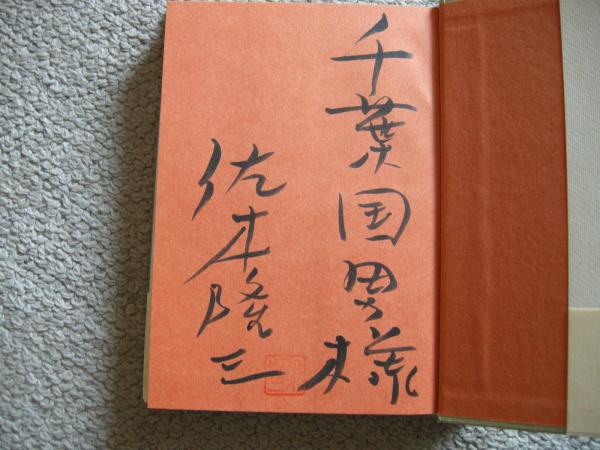 千葉国男様
佐木隆三